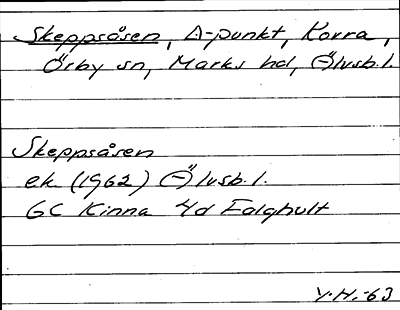 Skeppsåsen, Δ-punkt, Korra,
Örby sn, Marks hd, Älvsb.l.
Skeppsåsen
ek (1962) Älvsb.l.
6C Kinna 4d Falghult
Y.H.-63